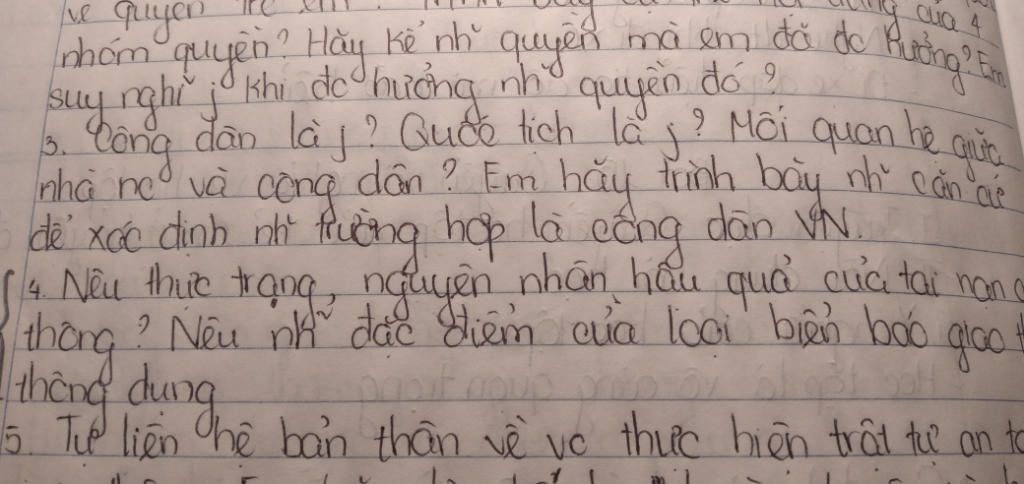 về quyền trẻ em?
nhóm quyền? Hãy kể nh~ quyền mà em đã đc hưởng? Em
suy nghĩ j khi đc hưởng nh~ quyền đó?
3. Công dân là j? Quốc tịch là j? Mối quan hệ giữa
nhà nc và công dân? Em hãy trình bày nh~ căn cứ
để xác định nh~ trường hợp là công dân VN.
4. Nêu thực trạng, nguyên nhân hậu quả của tai nạn
thông? Nêu nh~ đặc điểm của loại biển báo giao
thông dụng
5. Tự liên hệ bản thân về vc thực hiện trật tự an